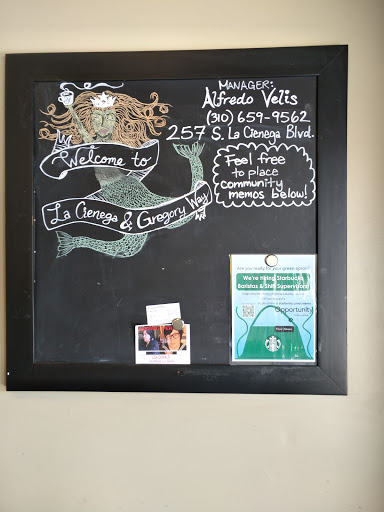 MANAGER:
Alfredo Velis
(310) 659-9562
257 S. La Cienega Blvd.
Welcome to
La Cienega & Gregory Way
Feel free
to place
community
memos below!
Are you ready for your green apron?
We're Hiring Starbucks
Baristas & Shift Supervisors!
Opportunity